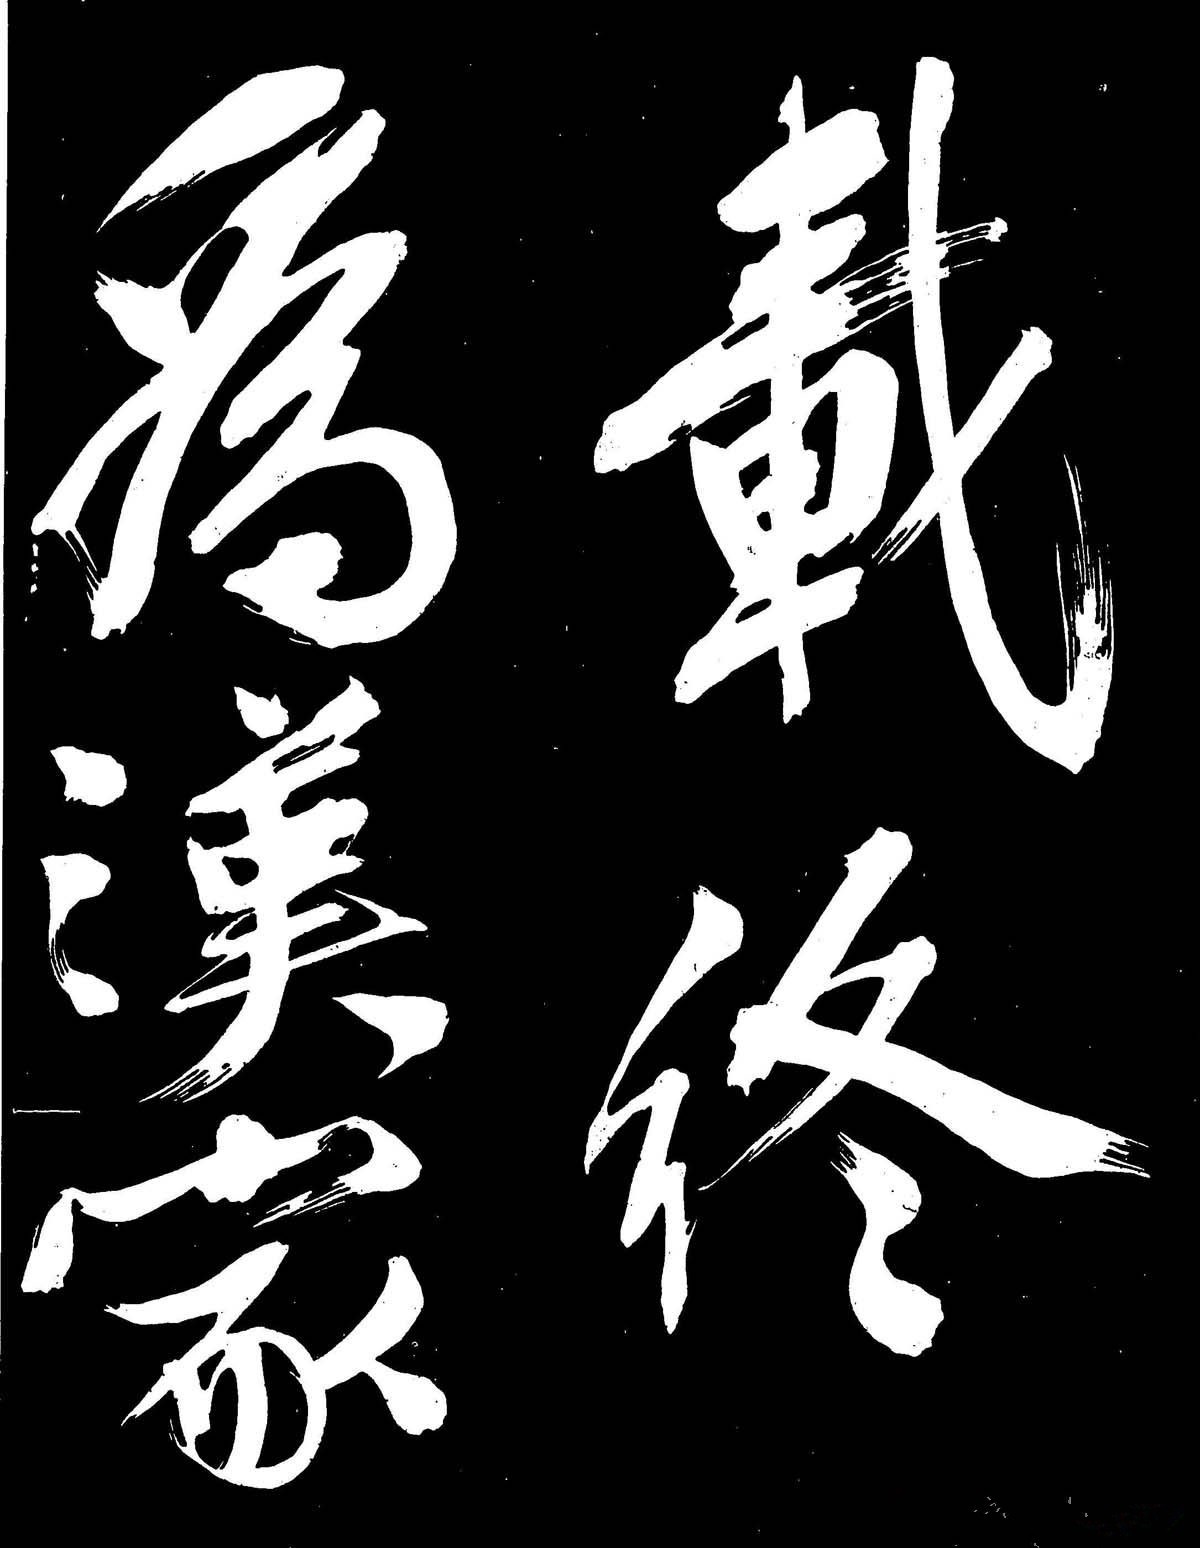 載終
爲漢家